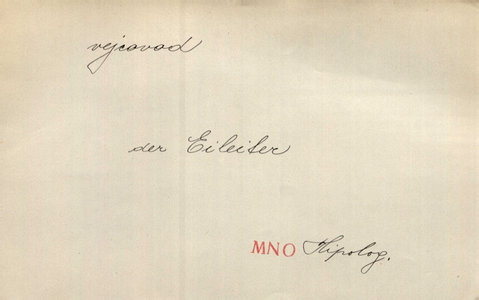 vejcovod
der Eileiter
MNO Hipolog.